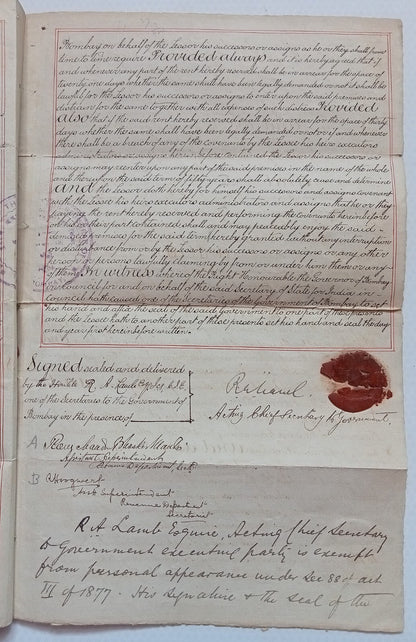 Bombay on behalf of the Lessor his successors or assigns as he or they shall from
time to time require Provided always and it is hereby agreed that if
and whenever any part of the rent hereby reserved shall be in arrear for the space of
twenty one days whether the same shall have been legally demanded or not it shall be
lawful for the lessor his successors or assigns to enter upon the said premises and
distrain for the same together with all expenses of such distress Provided
also that if the said rent hereby reserved shall be in arrear for the space of thirty
days whether the same shall have been legally demanded or not or if and whenever
there shall be a breach of any of the covenants by the lessee his heirs executors
administrators or assigns herein before contained the lessor his successors or
assigns may reenter upon any part of the said premises in the name of the whole
and thereupon the said term of years shall absolutely cease and determine
And the Lessor doth hereby for himself his successors and assigns covenant
with the lessee his heirs executors administrators and assigns that he or they
paying the rent hereby reserved and performing the covenants hereinbefore
on his or their part contained shall and may peaceably enjoy the said
demised premises for the said term hereby granted without any interruption
or disturbance from or by the lessor his successors or assigns or any other
person or persons lawfully claiming by from or under him them or any
of them In witness whereof the Right Honourable the Governor of Bombay
in Council for and on behalf of the said Secretary of State for India in
Council hath caused one of the Secretaries of the Government of Bombay to set
his hand and affix the seal of the said Government to one part of these presents
and the Lessee hath to another part of these presents set his hand and seal the day
and year first herein before written.
Signed sealed and delivered
by the Honble R. A. Lamb Esqr C.I.E.
one of the Secretaries to the Government of
Bombay in the presence of
Acting Chief Secretary to Government.
A
Assistant Superintendent
B
Asst Superintendent
Revenue Department
Secretariat
R A Lamb Esquire, Acting Chief Secretary
to Government executing party is exempt
from personal appearance under Sec 88 of act
III of 1877. His signature & the seal of the